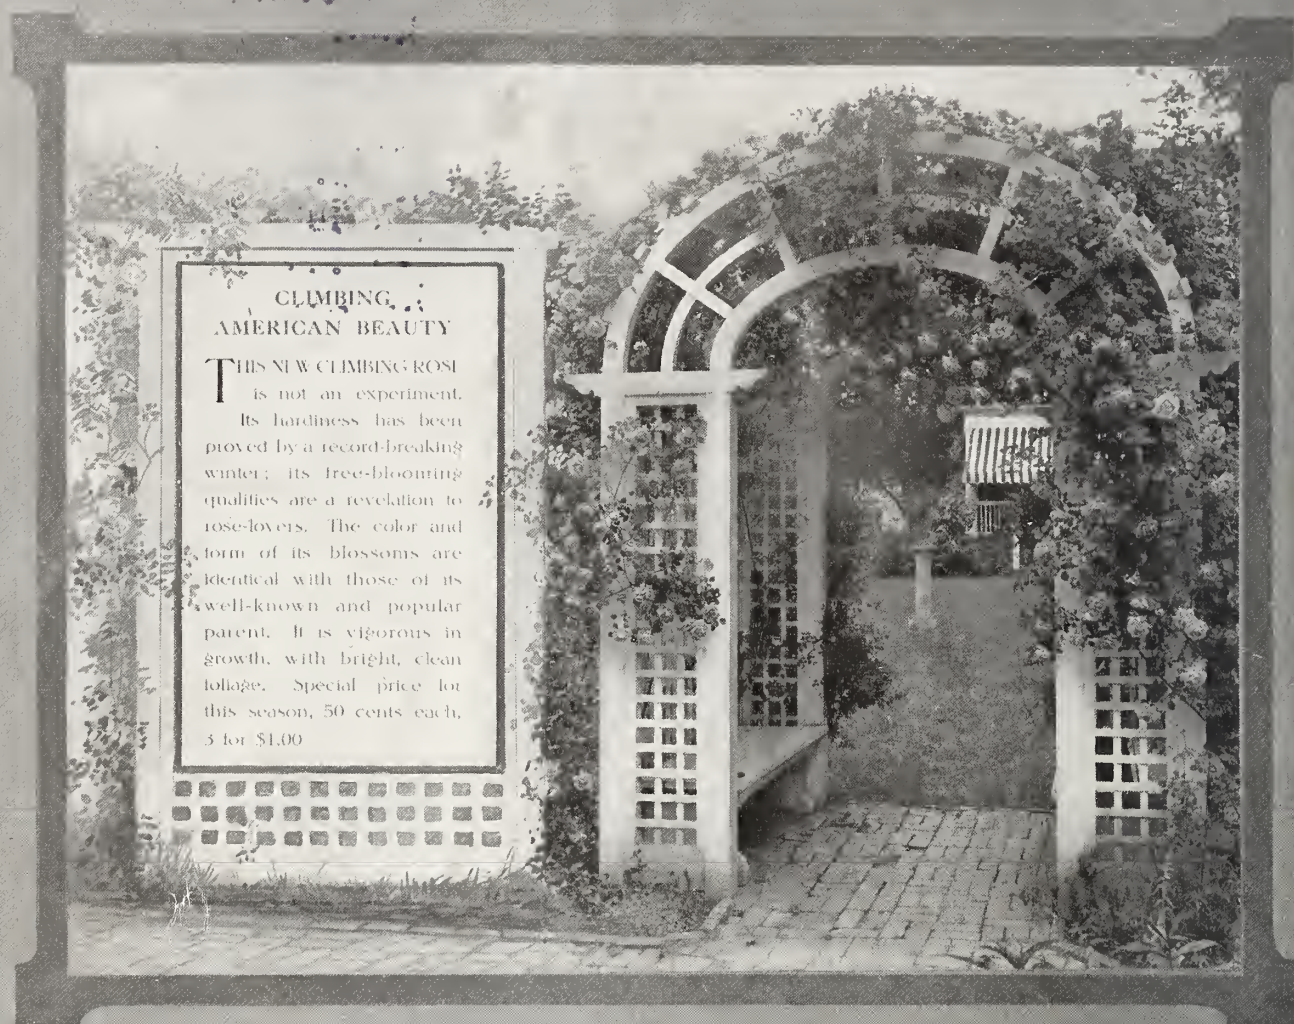 CLIMBING
AMERICAN BEAUTY
THIS NEW CLIMBING ROSE
is not an experiment.
Its hardiness has been
proved by a record-breaking
winter; its free-blooming
qualities are a revelation to
rose-lovers. The color and
form of its blossoms are
identical with those of its
well-known and popular
parent. It is vigorous in
growth, with bright, clean
foliage. Special price for
this season, 50 cents each,
3 for $1.00